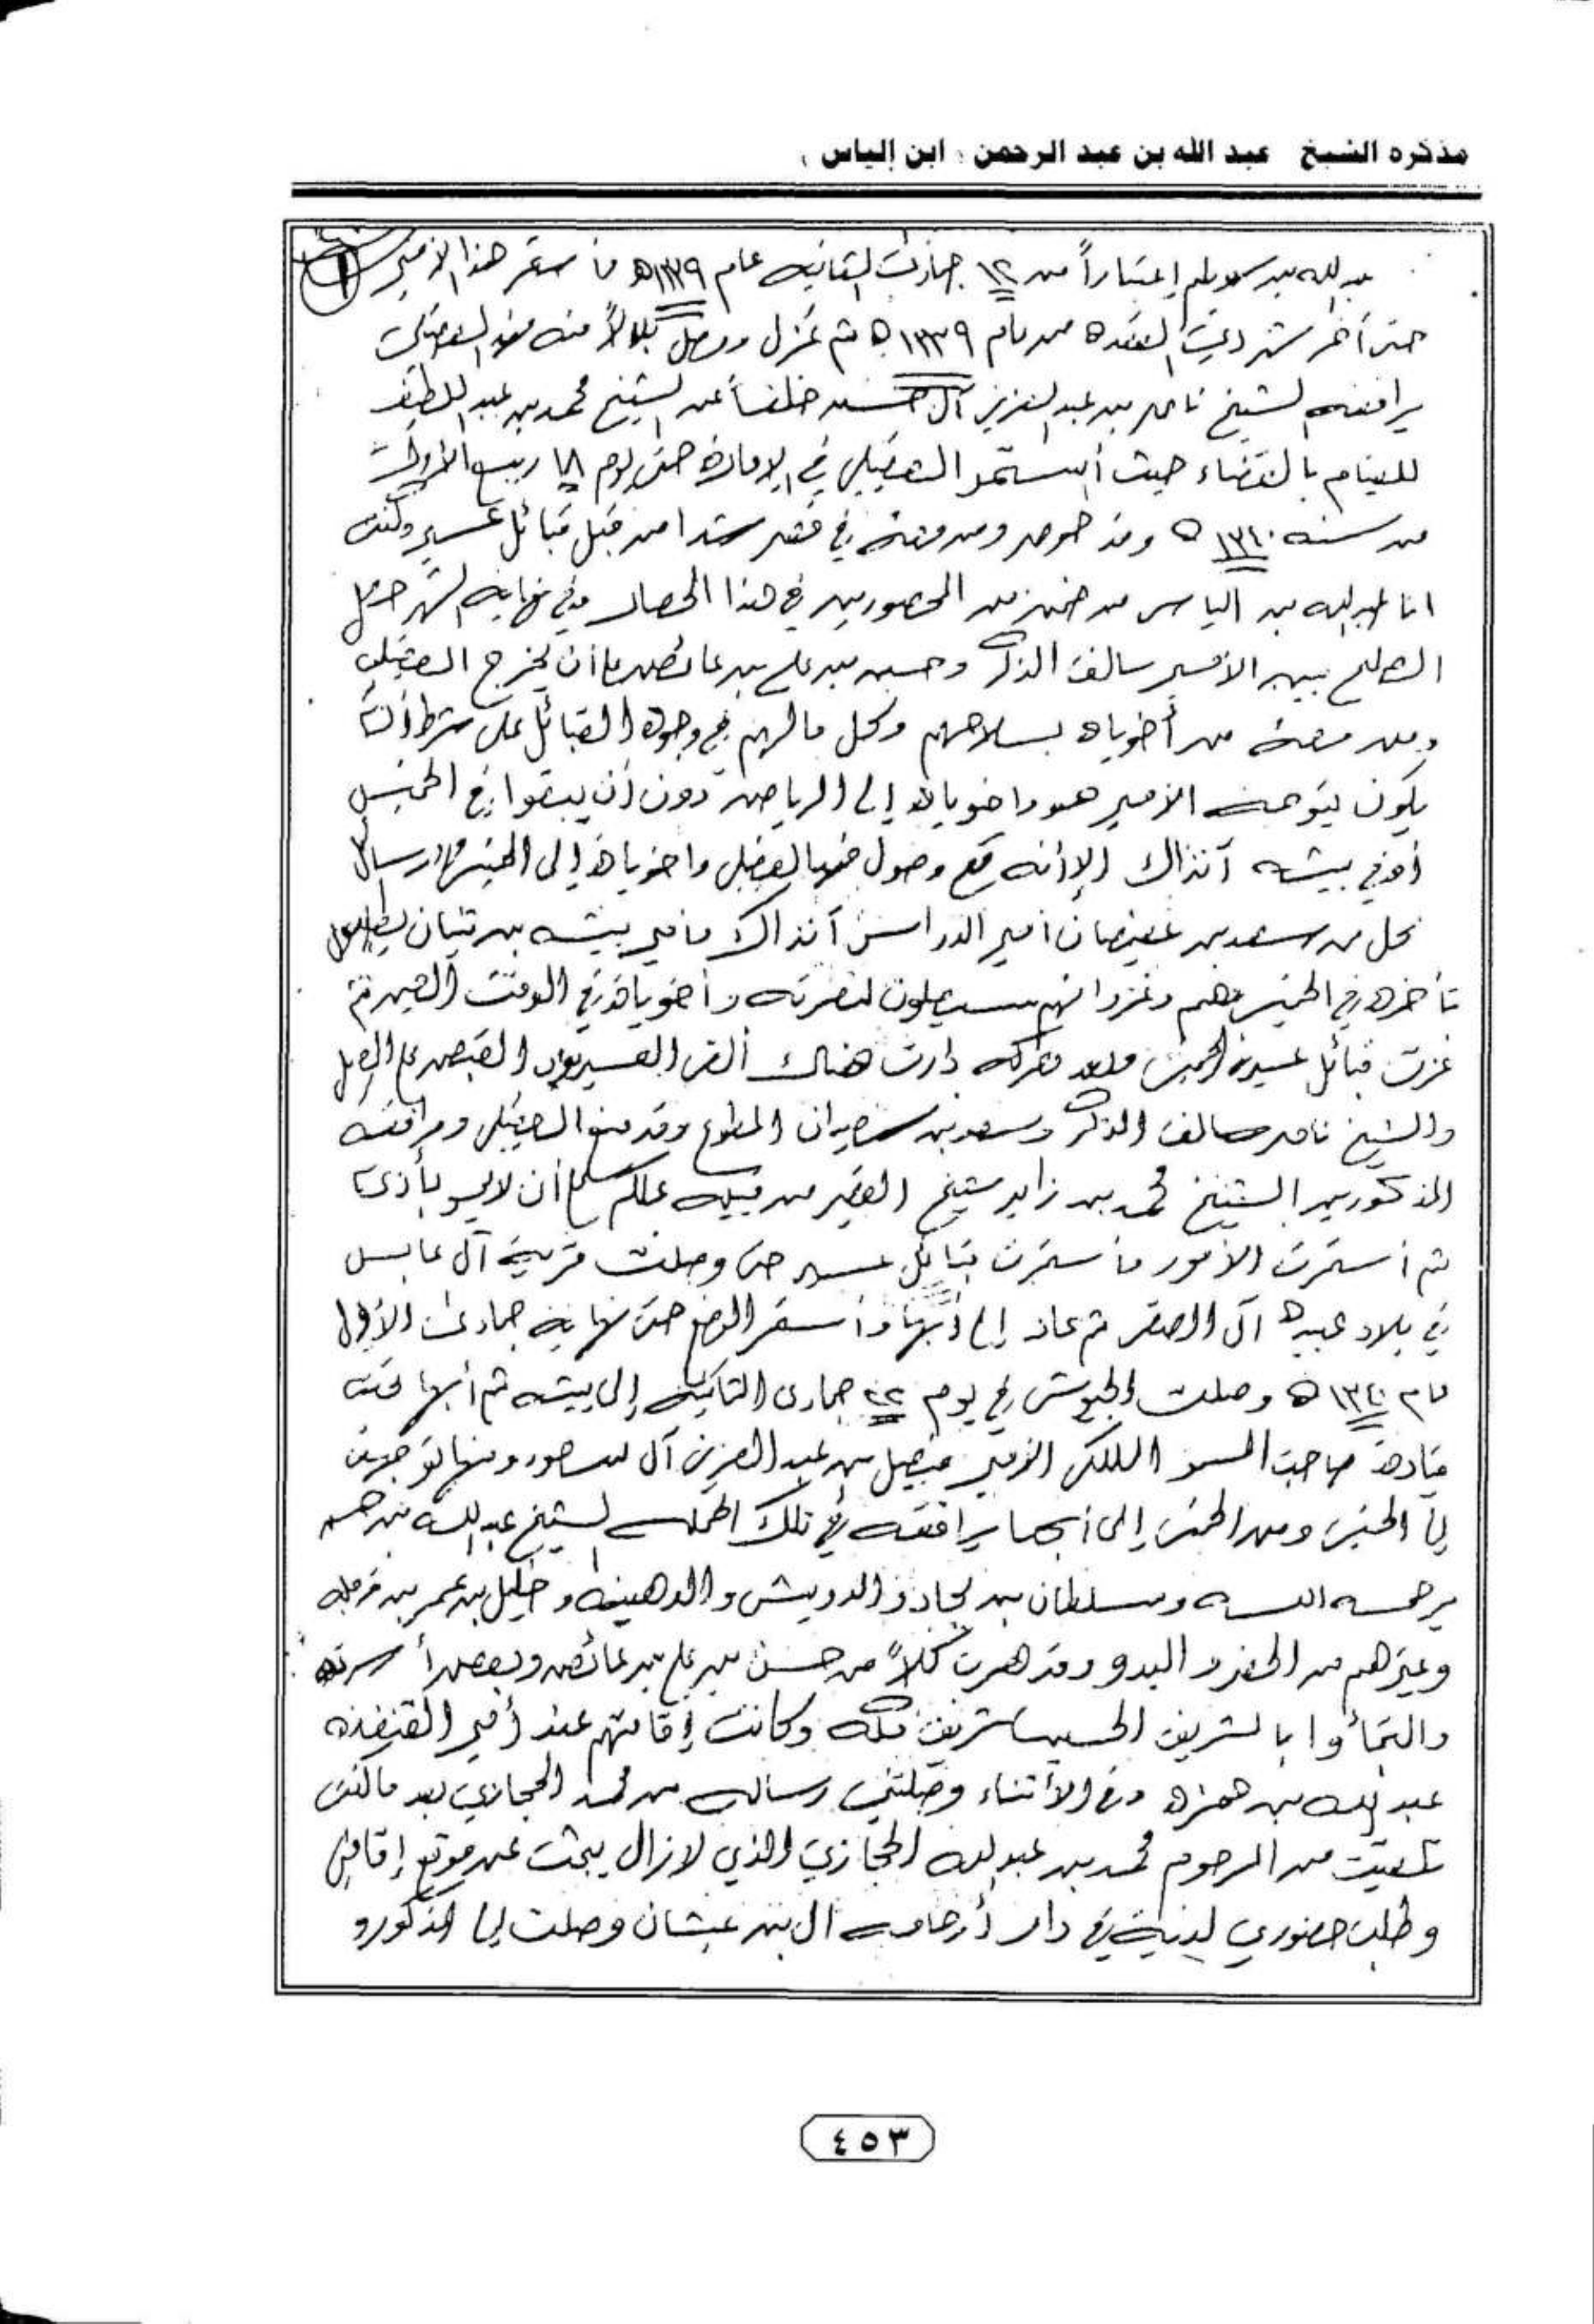 مذكرة الشيخ عبد الله بن عبد الرحمن ( ابن إلياس )
عبد الله بن سويلم إعتباراً من ١٢ جمادى الثانيه عام ١٣٣٩ه فأستمر هذا الأمير
حتى أخر شهر ذي القعده من عام ١٣٣٩ه ثم عزل ووصل بدلاً منه فهد العقيلي
يرافقه الشيخ ناصر بن عبد العزيز آل حسن خلفاً عن الشيخ محمد بن عبد اللطيف
للقيام بالقضاء حيث أستمر العقيلي في الإمارة حتى يوم ١٨ ربيع الأول
من سنه ١٣٤٠ه وقد حوصر ومن معه في قصر شدا من قبل قبائل عسير وكنت
انا عبد الله بن الياس من ضمن من المحصورين في هذا الحصار وفي نهاية الشهر حصل
الصلح بين الأمير سالف الذكر وحسن بن علي بن عائض على أن يخرج العقيلي
ومن معه من أخوياه بسلاحهم وكل مالهم في وجوه القبائل على شرط أن
يكون يتوجه الأمير هو واخوياه إلى الرياض دون أن يبقوا في الخميس
أو في بيشه آنذاك إلا أنه مع وصول فهد العقيلي واخوياه إلى الخميس أرسل
كل من سعد بن عفيصان أمير الدواسر آنذاك وأمير بيشه بن ثنيان
تأخره في الخميس وأنهم سيصلون لنصرته وأخوياه في الوقت الذي تم
غزت قبائل عسير الخميس وبعد معركه دارت هناك ألقى العسيريون القبض على العقيلي
والشيخ ناصر سالف الذكر وسعد بن سحيمان المطوع وقد منع العقيلي ومرافقيه
المذكورين الشيخ محمد بن زايد شيخ الصقر من قبيله علكم على أن لايمسو بأذى
ثم أستمرت الأمور وأستمرت قبائل عسير حتى وصلت قرية آل عابس
في بلاد عبيده آل الصقر ثم عاد إلى أبها وأستمر الوضع حتى نهاية جمادى الأول
عام ١٣٤٠ه وصلت الجيوش في يوم ٢٢ جمادى الثانيه إلى بيشه ثم أبها تحت
قيادة صاحب السمو الملكي الأمير فيصل بن عبد العزيز آل سعود ومنها توجهت
إلى الخميس ومن الخميس إلى أبها يرافقه في تلك الحمله الشيخ عبد الله بن حسن
يرحمه الله وسلطان بن بجاد والدويش والدهينه وخليل بن عمر بن قرمله
وغيرهم من الحضر والبدو وقد هرب كلاً من حسن بن علي بن عائض وبعض أسرته
والتجأوا بالشريف الحسين شريف مكه وكانت إقامتهم عند أمير القنفذه
عبد الله بن حمزه وفي الأثناء وصلتني رساله من محمد الحجازي بعد ما كنت
تلقيت من المرحوم محمد بن عبد الله الحجازي الذي لازال يبحث عن موقع إقامتي
وطلب حضوري لديه في دار أرحامه ال بن عبشان وصلت إلى المذكور و
٤٥٣